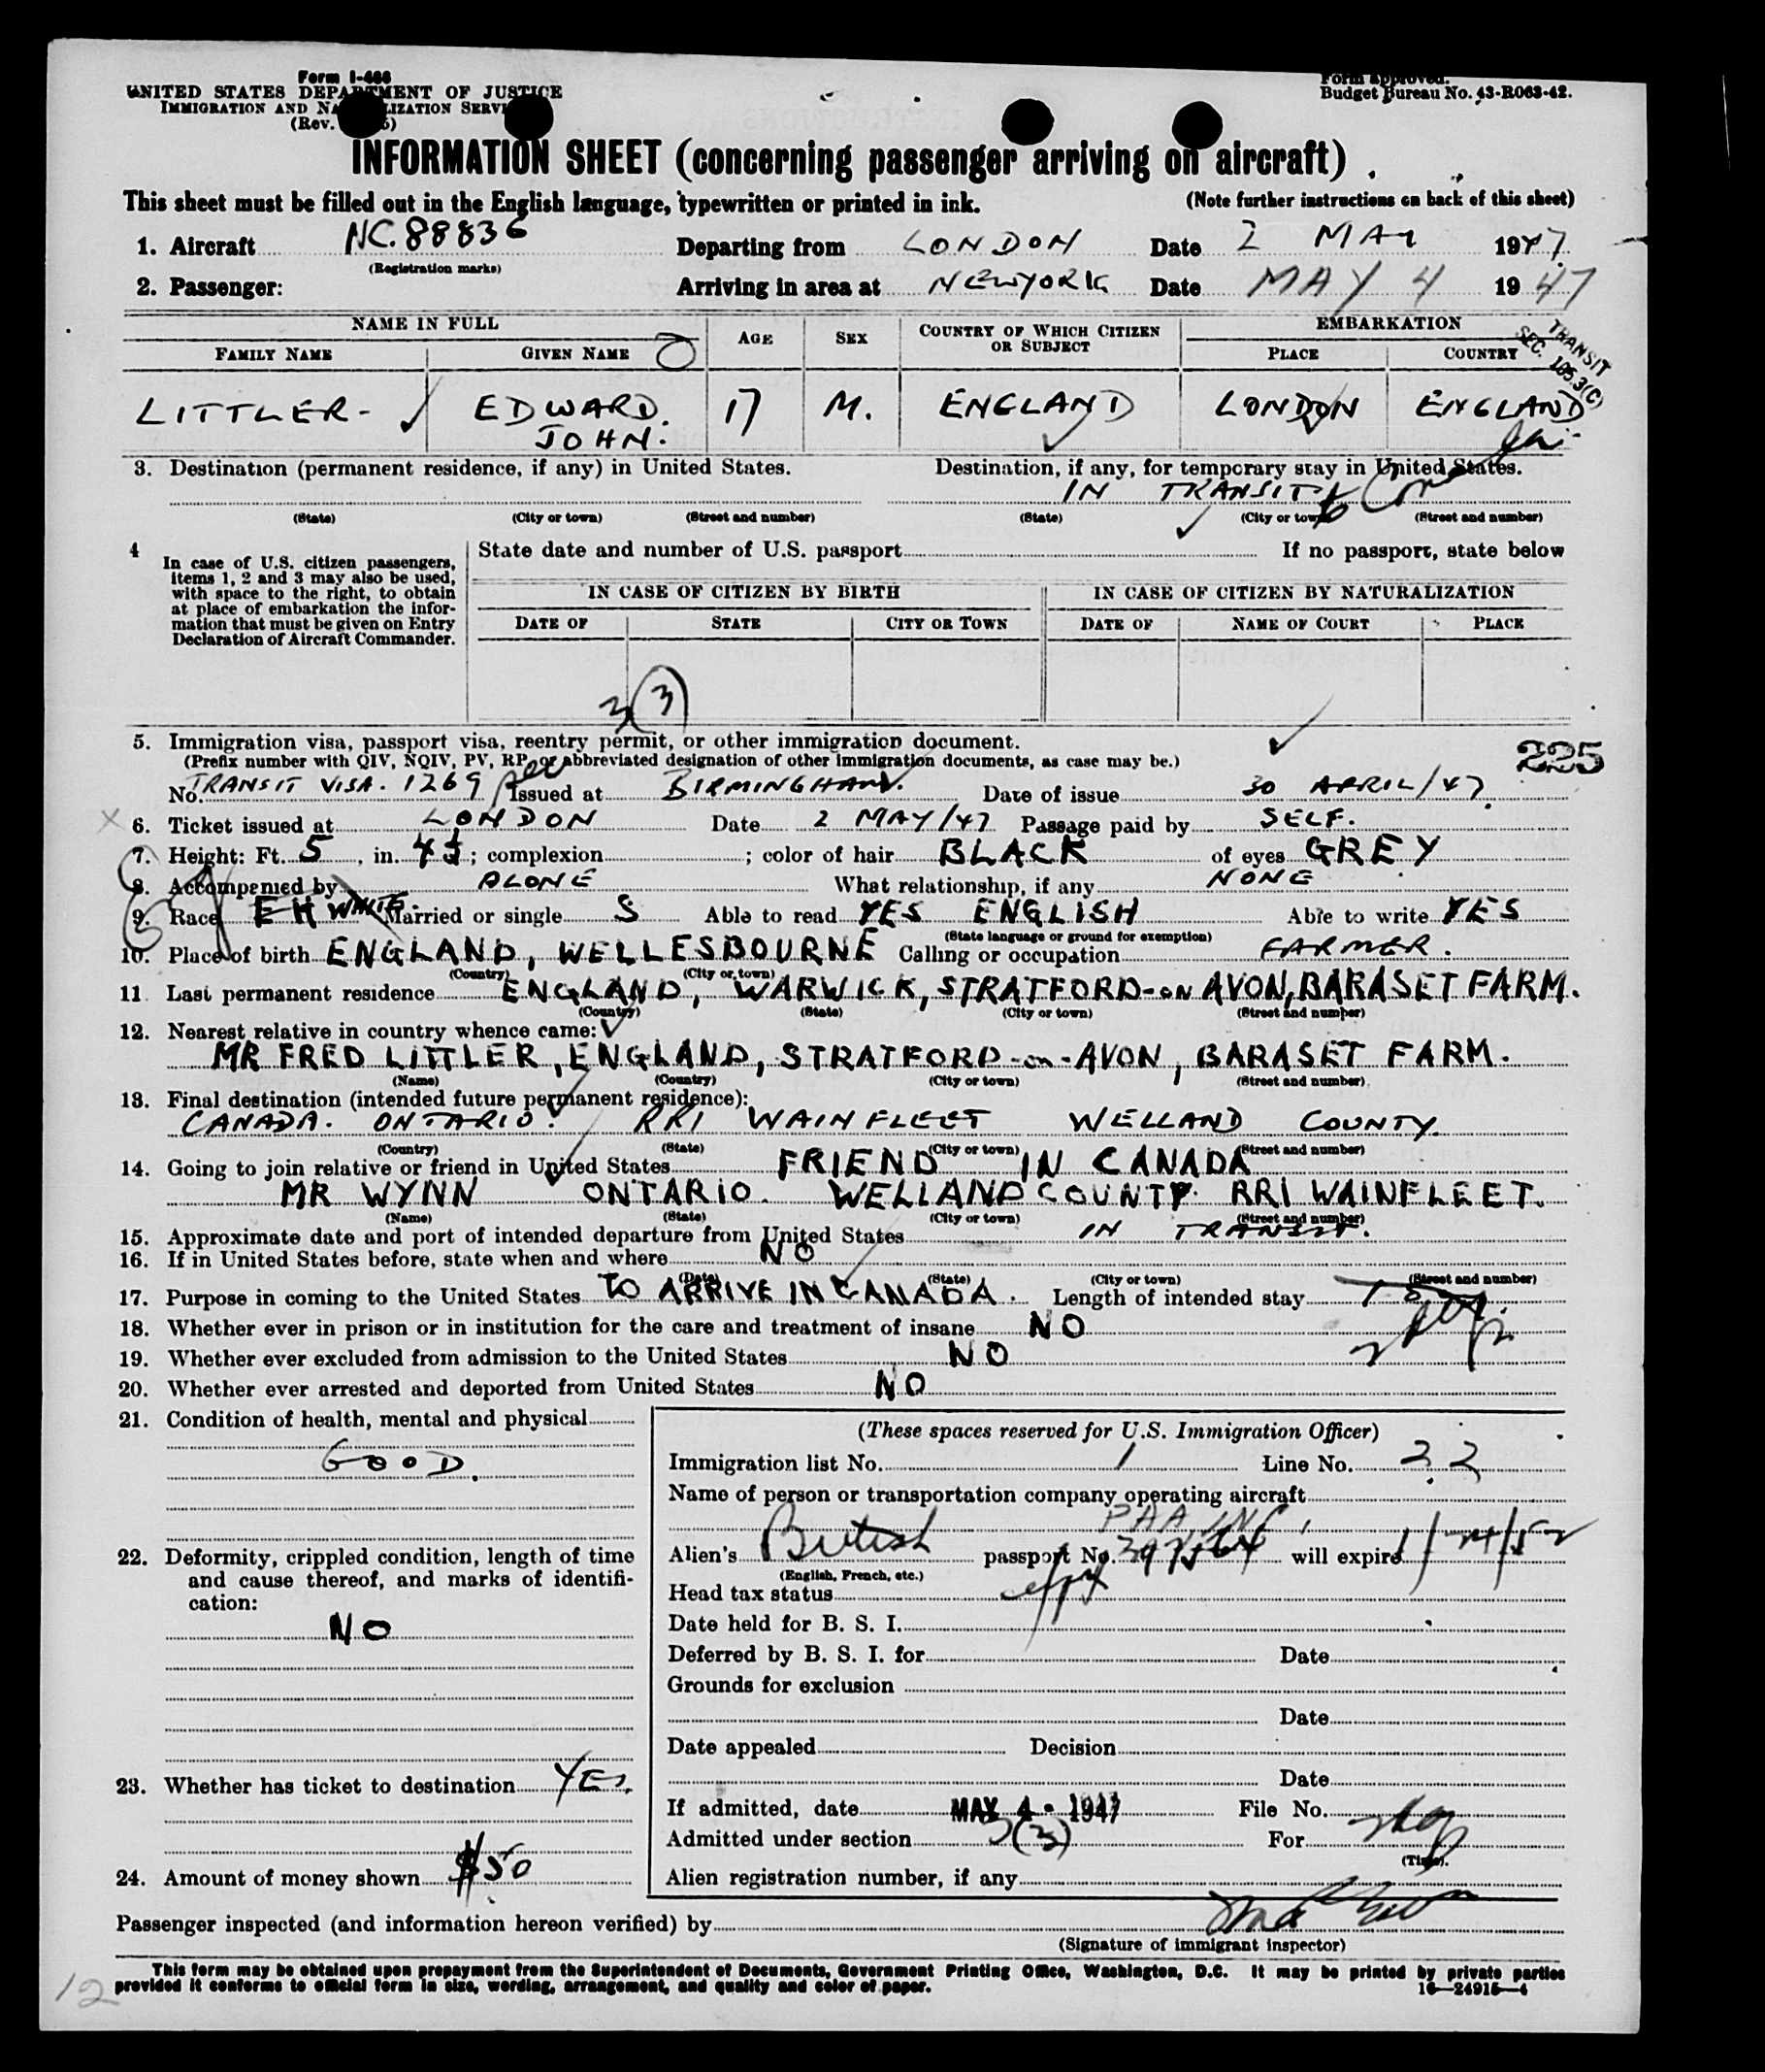 Form I-466
UNITED STATES DEPARTMENT OF JUSTICE
IMMIGRATION AND NATURALIZATION SERVICE
(Rev.
Form approved.
Budget Bureau No. 43-R063-42.
INFORMATION SHEET (concerning passenger arriving on aircraft)
This sheet must be filled out in the English language, typewritten or printed in ink. (Note further instructions on back of this sheet)
1. Aircraft NC.88836 Departing from LONDON Date 2 MAY 1947.
(Registration marks)
2. Passenger: Arriving in area at NEWYORK Date MAY 4 1947
NAME IN FULL AGE SEX COUNTRY OF WHICH CITIZEN OR SUBJECT EMBARKATION
FAMILY NAME GIVEN NAME PLACE COUNTRY
TRANSIT
SEC. 105.3(C)
LITTLER- EDWARD. 17 M. ENGLAND LONDON ENGLAND
JOHN.
3. Destination (permanent residence, if any) in United States. Destination, if any, for temporary stay in United States.
IN TRANSIT to Canada
(State) (City or town) (Street and number) (State) (City or town) (Street and number)
4 In case of U.S. citizen passengers, items 1, 2 and 3 may also be used, with space to the right, to obtain at place of embarkation the information that must be given on Entry Declaration of Aircraft Commander.
State date and number of U.S. passport If no passport, state below
IN CASE OF CITIZEN BY BIRTH IN CASE OF CITIZEN BY NATURALIZATION
DATE OF STATE CITY OR TOWN DATE OF NAME OF COURT PLACE
3(3)
5. Immigration visa, passport visa, reentry permit, or other immigration document.
(Prefix number with QIV, NQIV, PV, RP, or abbreviated designation of other immigration documents, as case may be.) 225
No. TRANSIT VISA. 1269 Issued at BIRMINGHAM. Date of issue 30 APRIL/47.
6. Ticket issued at LONDON Date 2 MAY/47 Passage paid by SELF.
7. Height: Ft. 5, in. 4½; complexion ; color of hair BLACK of eyes GREY
8. Accompanied by ALONE What relationship, if any NONE
9. Race EH WHITE. Married or single S Able to read YES ENGLISH Able to write YES
(State language or ground for exemption)
10. Place of birth ENGLAND, WELLESBOURNE Calling or occupation FARMER.
(Country) (City or town)
11 Last permanent residence ENGLAND, WARWICK, STRATFORD-on AVON, BARASET FARM.
(Country) (State) (City or town) (Street and number)
12. Nearest relative in country whence came:
MR FRED LITTLER, ENGLAND, STRATFORD-on-AVON, BARASET FARM.
(Name) (Country) (City or town) (Street and number)
13. Final destination (intended future permanent residence):
CANADA. ONTARIO. RR1 WAINFLEET WELLAND COUNTY.
(Country) (State) (City or town) (Street and number)
14. Going to join relative or friend in United States FRIEND IN CANADA
MR WYNN ONTARIO. WELLAND COUNTY. RR1 WAINFLEET.
(Name) (State) (City or town) (Street and number)
15. Approximate date and port of intended departure from United States IN TRANSIT.
16. If in United States before, state when and where NO
(Date) (State) (City or town) (Street and number)
17. Purpose in coming to the United States TO ARRIVE IN CANADA. Length of intended stay
18. Whether ever in prison or in institution for the care and treatment of insane NO
19. Whether ever excluded from admission to the United States NO
20. Whether ever arrested and deported from United States NO
21. Condition of health, mental and physical
GOOD.
22. Deformity, crippled condition, length of time and cause thereof, and marks of identification:
NO
23. Whether has ticket to destination YES.
24. Amount of money shown $50
(These spaces reserved for U.S. Immigration Officer)
Immigration list No. 1 Line No. 22
Name of person or transportation company operating aircraft
PAA INC
Alien's British passport No. will expire 1/24/52
(English, French, etc.)
Head tax status
Date held for B. S. I.
Deferred by B. S. I. for Date
Grounds for exclusion
Date
Date appealed Decision
Date
If admitted, date MAY 4 - 1947 File No.
Admitted under section 3(3) For
(Time).
Alien registration number, if any
Passenger inspected (and information hereon verified) by
(Signature of immigrant inspector)
This form may be obtained upon prepayment from the Superintendent of Documents, Government Printing Office, Washington, D.C. It may be printed by private parties
provided it conforms to official form in size, wording, arrangement, and quality and color of paper. 16—24915—4
12